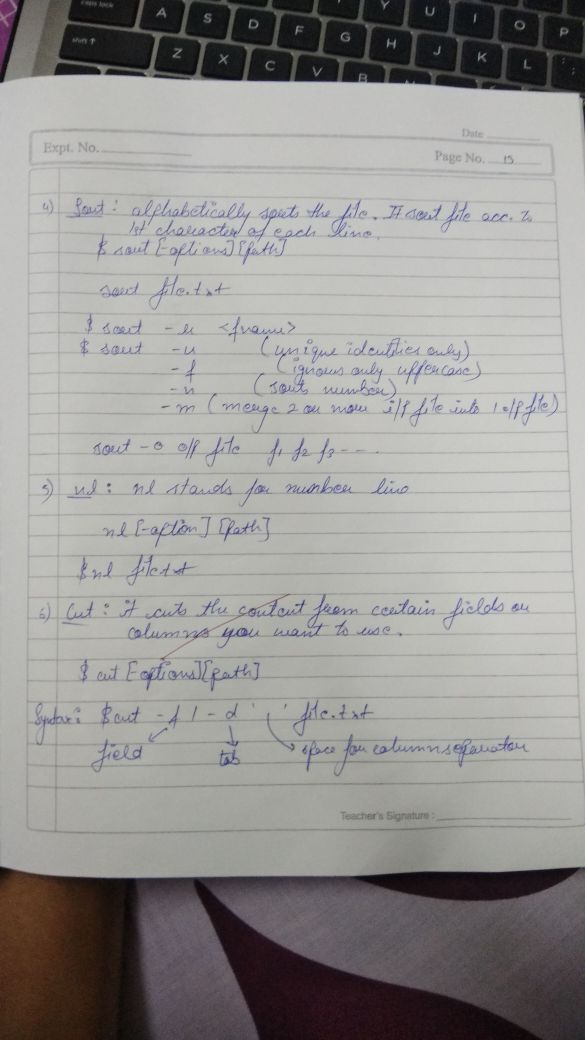 caps lock A S D F G H J K L
shift Z X C V B N M
Y U I O P
Date
Expt. No.
Page No. 15
4) Sort : alphabetically sorts the file. It sort file acc. to
1st character of each line.
$ sort [-options] [path]
sort file.txt
$ sort -r <fname>
$ sort -u (unique identities only)
-f (ignores only uppercase)
-n (sorts number)
-m (merge 2 or more i/p file into 1 o/p file)
sort -o o/p file f1 f2 f3 ----
5) nl : nl stands for number line
nl [-option] [path]
$ nl file.txt
6) Cut : it cuts the content from certain fields or
columns you want to use.
$ cut [-options] [path]
Syntax : $ cut -f 1 -d ' ' file.txt
field tab space for column separator
Teacher's Signature :